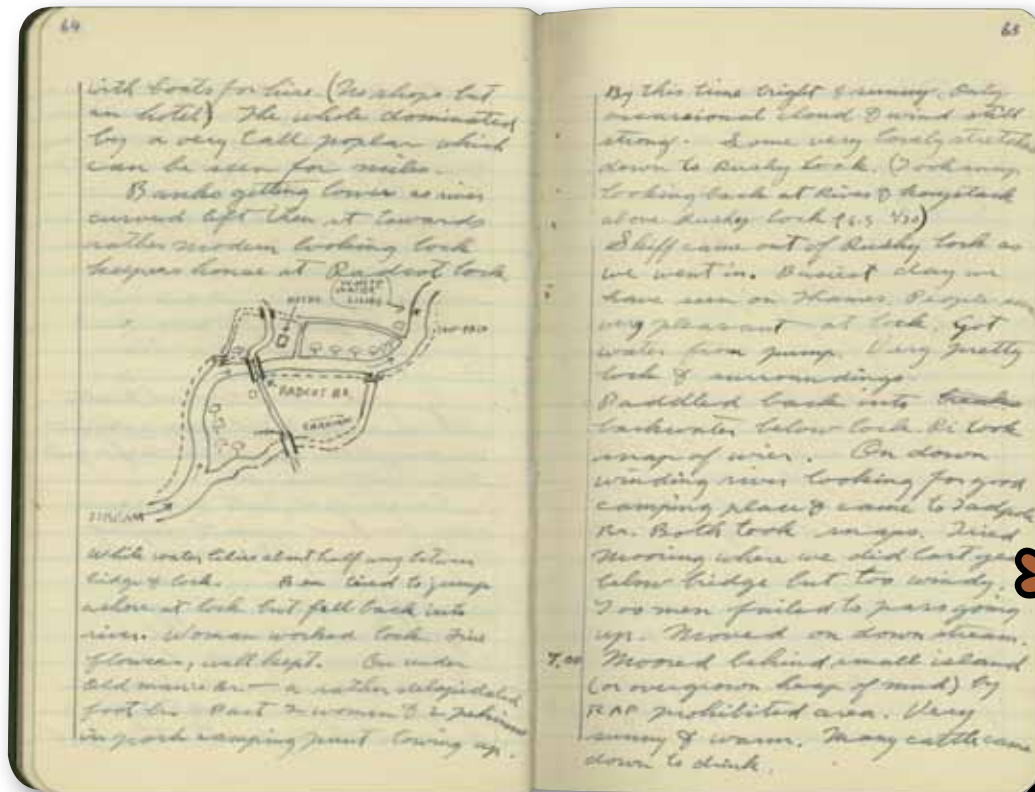 64
with boats for hire. (No shops but
an hotel) The whole dominated
by a very tall poplar which
can be seen for miles.
Banks getting lower as river
curved left then rt towards
rather modern looking lock
keepers house at Radcot lock
WHITE
WATER
LILIES
HOTEL
TOW PATH
RADCOT BR.
STREAM
White water lilies about half way between
bridge & lock. Ben tried to jump
ashore at lock but fell back into
river. Woman worked lock. Fine
flowers, well kept. On under
Old man's Br — a rather delapidated
foot br. Past 2 women & 2
in posh camping punt towing up.
65
By this time bright & sunny. Only
occasional cloud & wind still
strong. Some very lovely stretches
down to Rushy Lock. (Took snap
looking back at River & haystack
above Rushey lock
Skiff came out of Rushy lock as
we went in. Busiest day we
have seen on Thames. People
very pleasant at lock. Got
water from pump. Very pretty
lock & surroundings.
Paddled back into
backwater below lock. Di took
snap of wier. On down
winding river looking for good
camping place & came to Tadpole
Br. Both took snaps. Tried
mooring where we did last year
below bridge but too windy.
Two men failed to pass going
up. Moved on down stream.
7.00 Moored behind small island
(or overgrown heap of mud) by
RAF prohibited area. Very
sunny & warm. Many cattle came
down to drink.